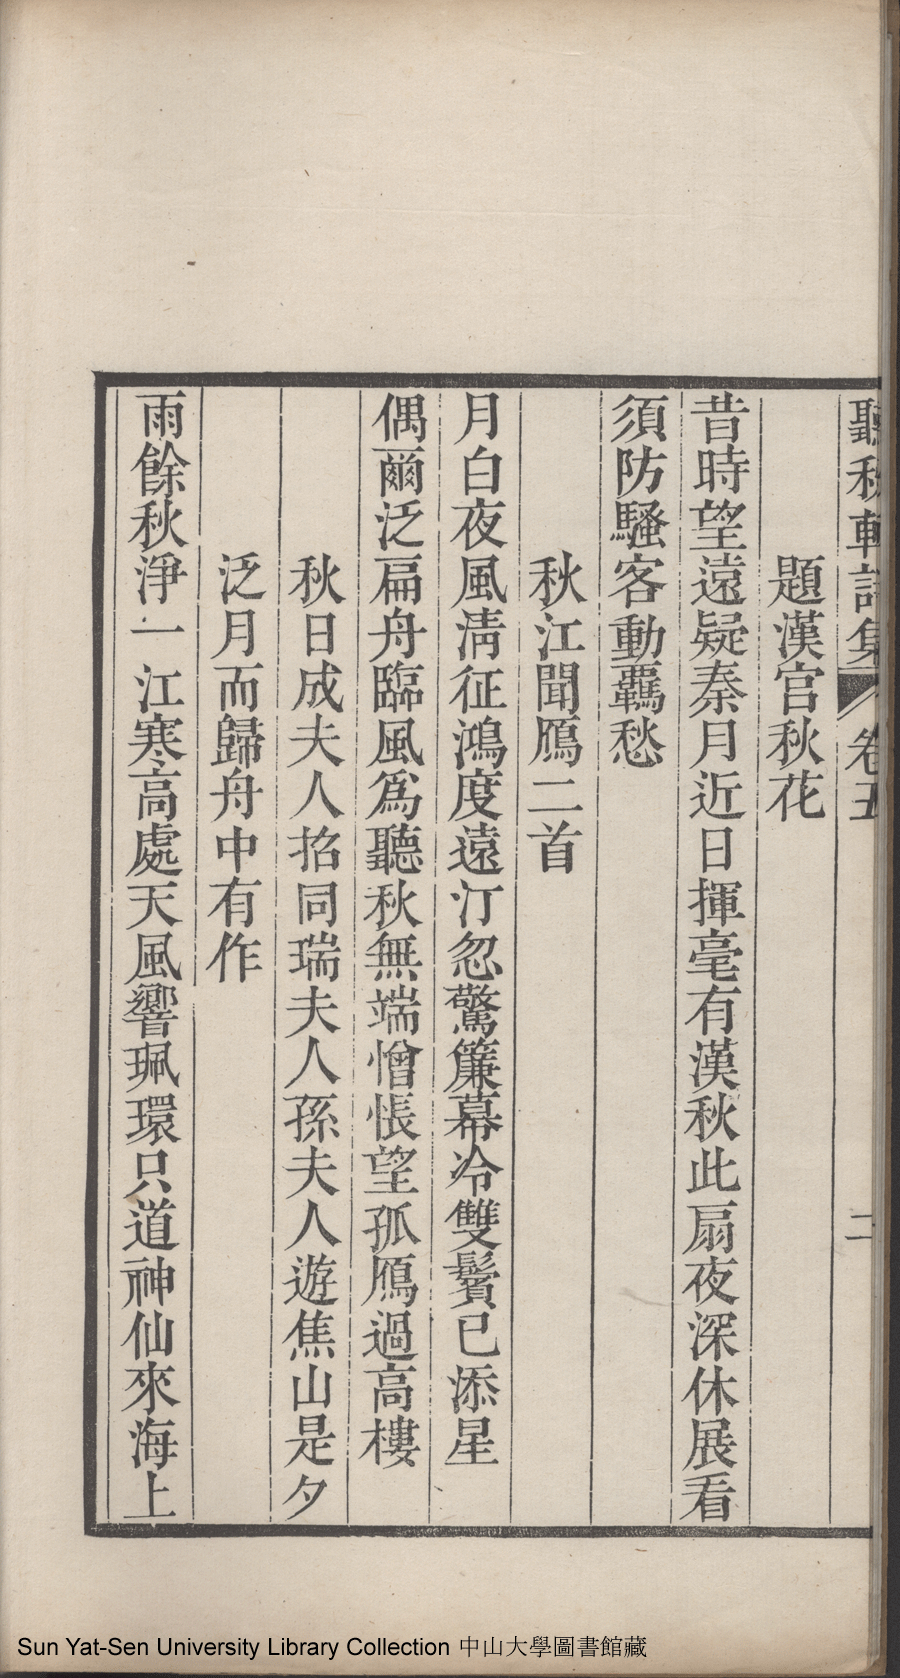 聽秋軒詩集 卷五 二
題漢宮秋花
昔時望遠疑秦月近日揮毫有漢秋此扇夜深休展看
須防騷客動羈愁
秋江聞鴈二首
月白夜風淸征鴻度遠汀忽驚簾幕冷雙鬢已添星
偶爾泛扁舟臨風爲聽秋無端憎悵望孤鴈過高樓
秋日成夫人招同瑞夫人孫夫人遊焦山是夕
泛月而歸舟中有作
雨餘秋淨一江寒高處天風響珮環只道神仙來海上
Sun Yat-Sen University Library Collection 中山大學圖書館藏